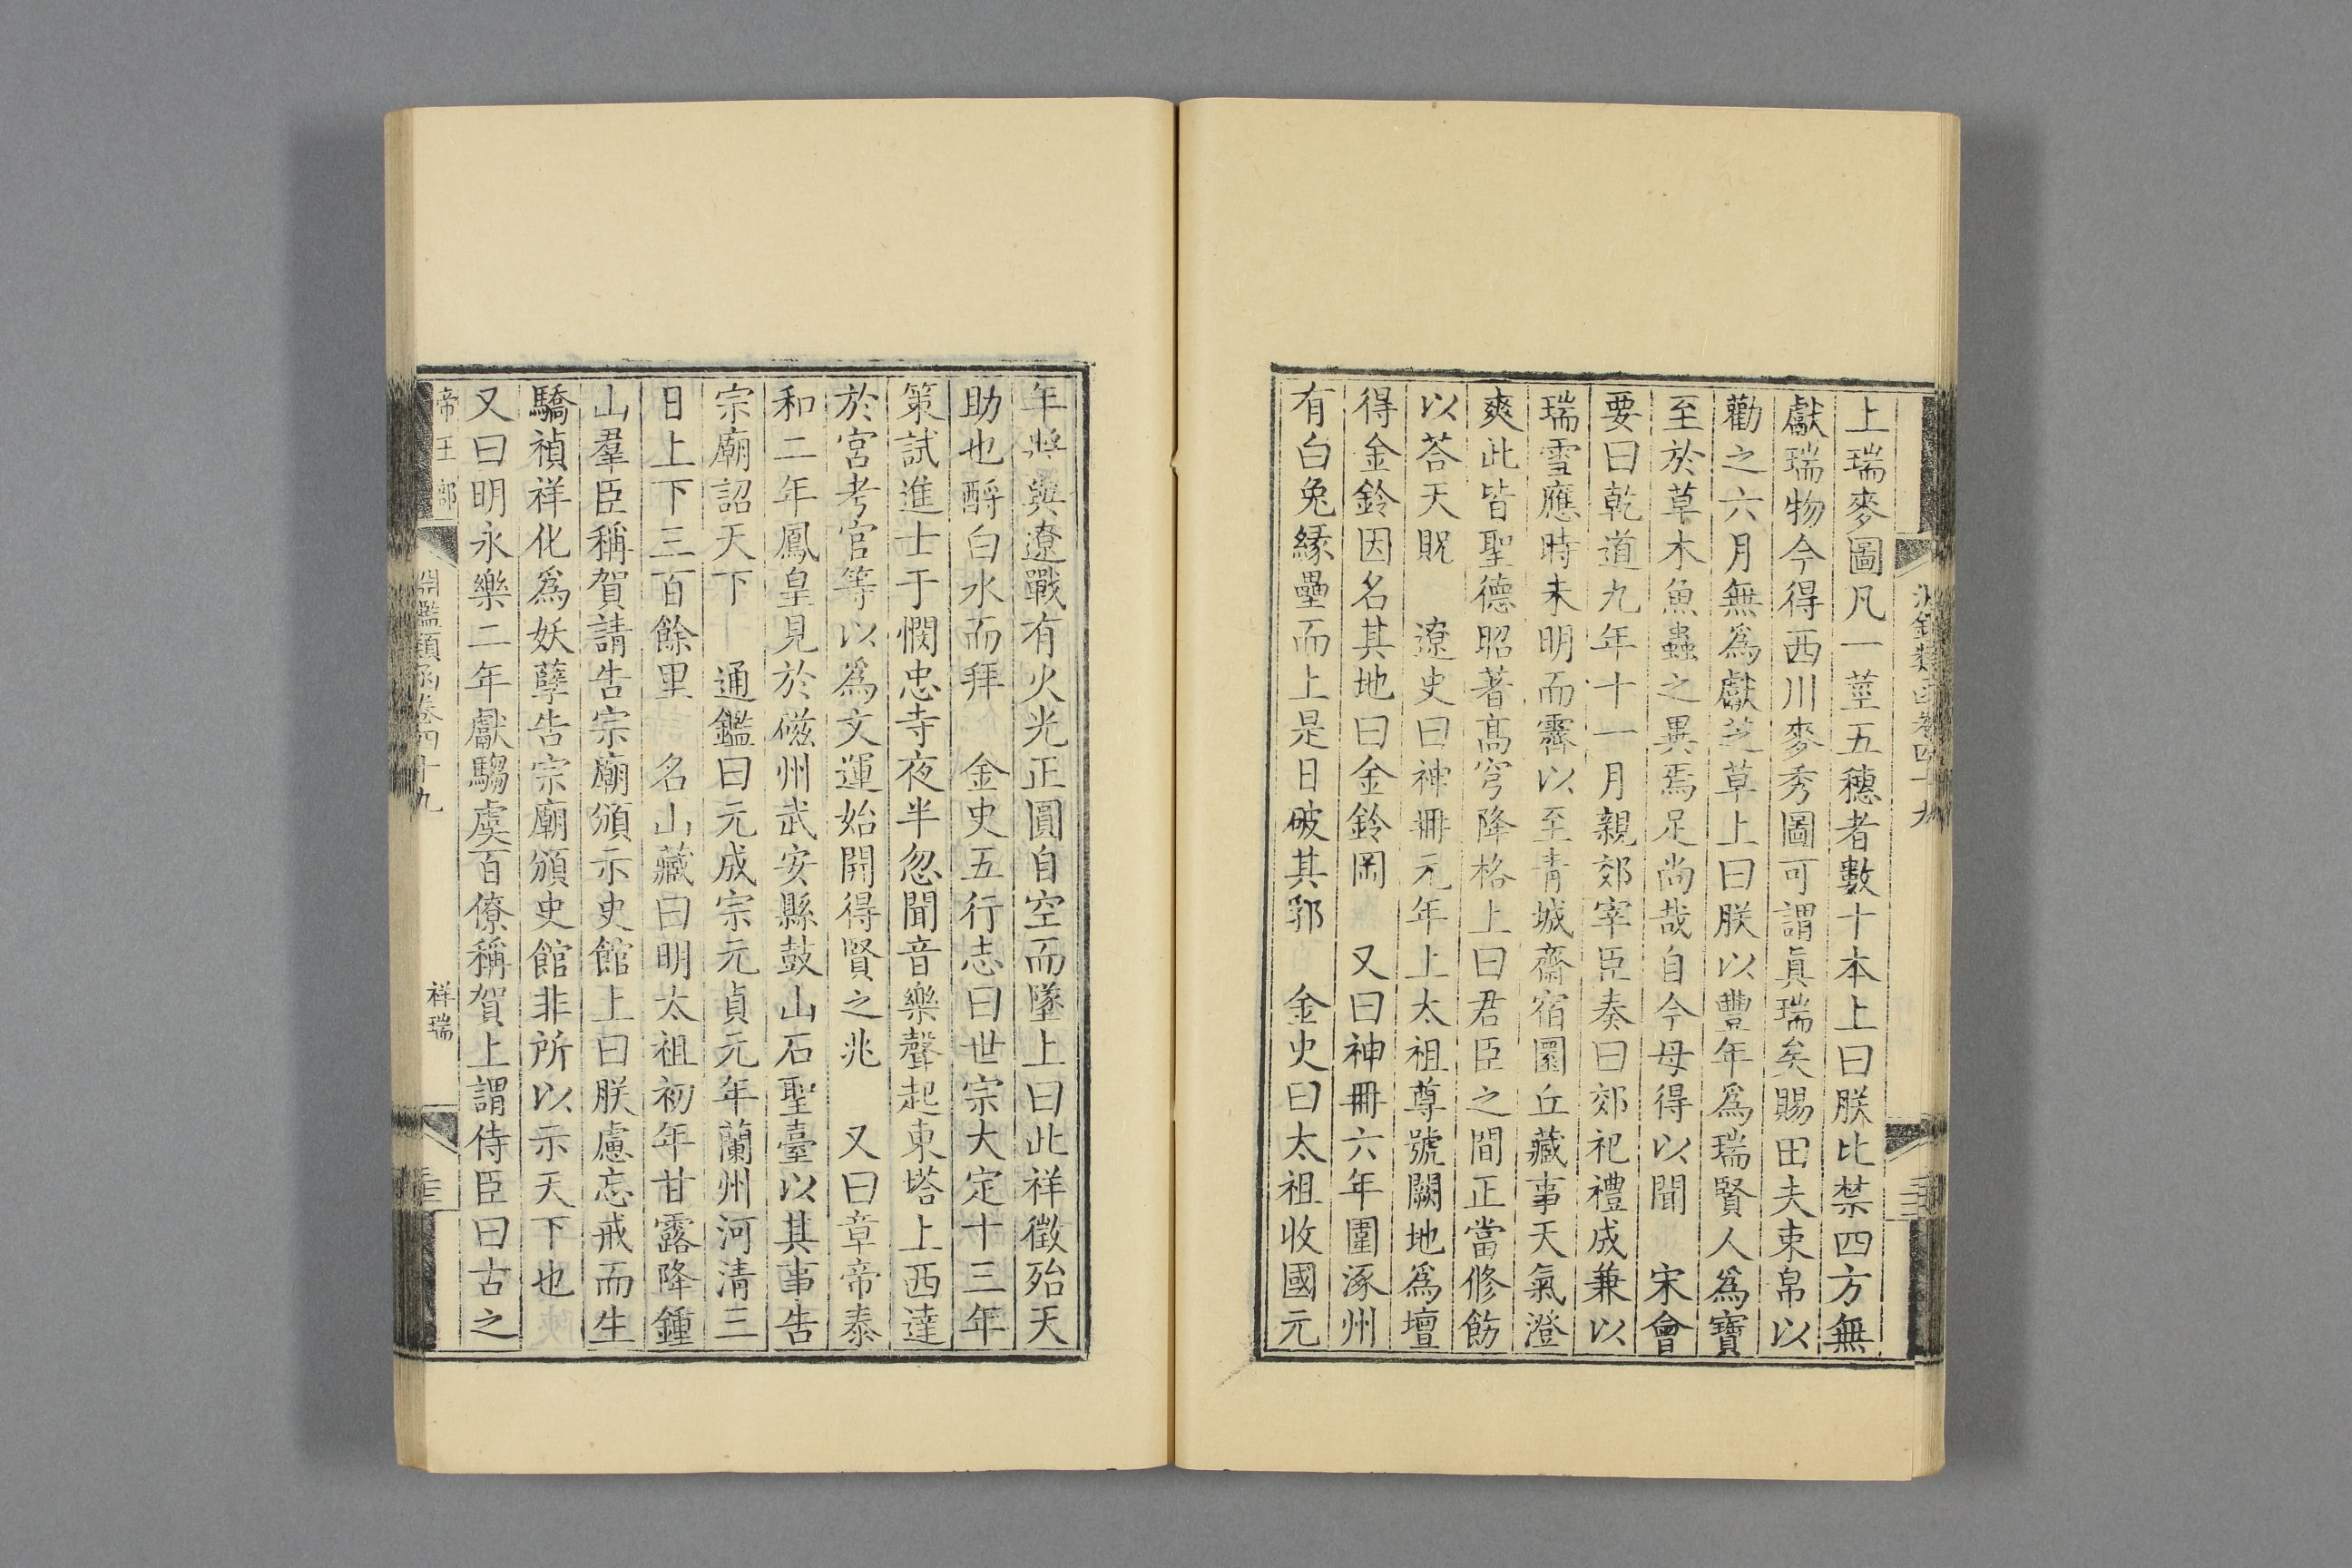 上瑞麥圖凡一莖五穗者數十本上曰朕比禁四方無
獻瑞物今得西川麥秀圖可謂眞瑞矣賜田夫束帛以
勸之六月無爲獻芝草上曰朕以豐年爲瑞賢人爲寶
至於草木魚蟲之異焉足尚哉自今毋得以聞　宋會
要曰乾道九年十一月親郊宰臣奏曰郊祀禮成兼以
瑞雪應時未明而霽以至青城齋宿圜丘蕆事天氣澄
爽此皆聖德昭著髙穹降格上曰君臣之間正當修飭
以荅天貺　遼史曰神冊元年上太祖尊號闕地爲壇
得金鈴因名其地曰金鈴岡　又曰神冊六年圍涿州
有白兔緣壘而上是日破其郛　金史曰太祖收國元
年將與遼戰有火光正圓自空而墜上曰此祥徵殆天
助也酹白水而拜　金史五行志曰世宗大定十三年
策試進士于憫忠寺夜半忽聞音樂聲起東塔上西達
於宮考官等以爲文運始開得賢之兆　又曰章帝泰
和二年鳳皇見於磁州武安縣鼓山石聖臺以其事告
宗廟詔天下　通鑑曰元成宗元貞元年蘭州河清三
日上下三百餘里　名山藏曰明太祖初年甘露降鍾
山羣臣稱賀請告宗廟頒示史館上曰朕慮忘戒而生
驕禎祥化爲妖孽告宗廟頒史館非所以示天下也
又曰明永樂二年獻騶虞百僚稱賀上謂侍臣曰古之
帝王部　淵鑑類函卷四十九　祥瑞